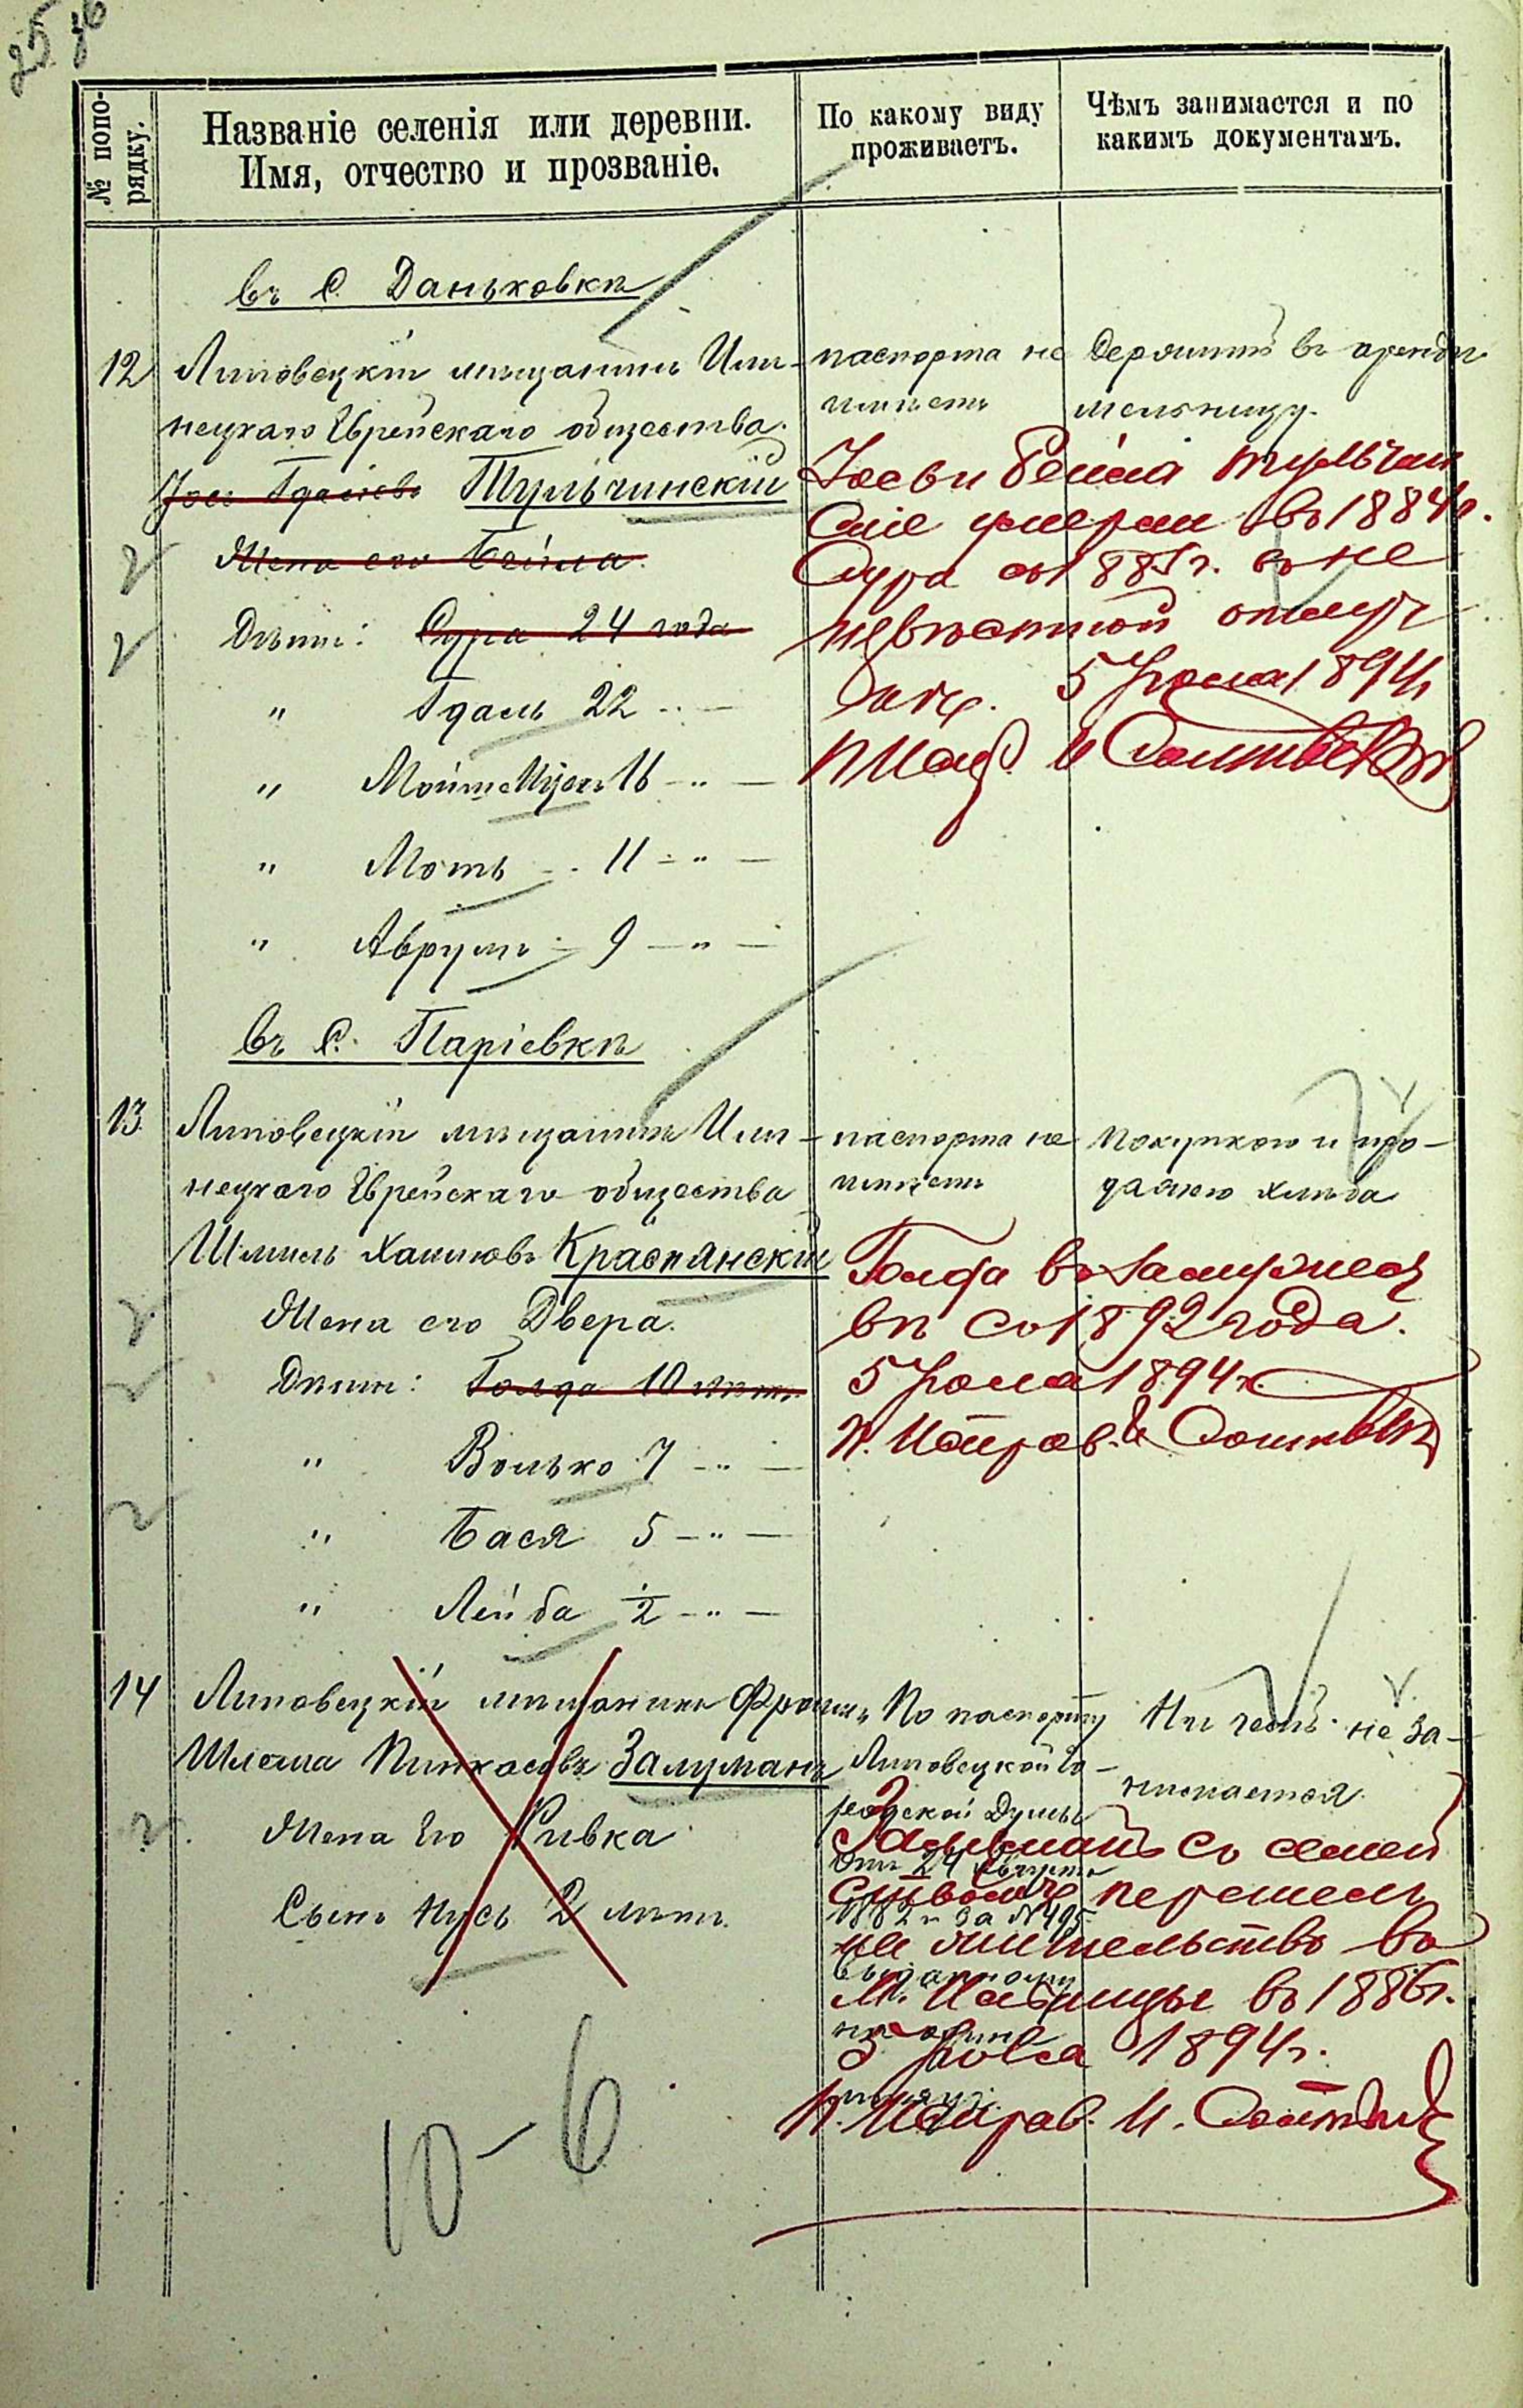 25 уб
№ попо-
рядку.
Названіе селенія или деревни.
Имя, отчество и прозваніе.
По какому виду
проживаетъ.
Чѣмъ занимается и по
какимъ документамъ.
Въ с. Даньковкѣ
12
Липовецкій мѣщанинъ Илин-
нецкаго Еврейскаго общества
Іосъ Гдалевъ Тульчинскій
Жена его Бейла
Дѣти: Сура 24 года
" Гдаль 22 - " -
" Мойше 16 - " -
" Мотъ - 11 - " -
" Аврумъ - 9 - " -
паспорта не
имѣетъ
Держитъ въ арендѣ
мельницу.
Іось и Бейла Тульчин
скіе умерли въ 1884 г.
Сура съ 1885 г. въ не
извѣстной отлуч
кѣ. 5 Іюля 1894 г.
Въ с. Паріевкѣ
13
Липовецкій мѣщанинъ Илин-
нецкаго Еврейскаго общества
Шмиль Хаимовъ Краснянскій
Жена его Двера.
Дѣти: Голда 10 лѣтъ
" Волько 7 - " -
" Бася 5 - " -
" Лейба 1/2 - " -
паспорта не
имѣетъ
Покупкою и про-
дажею хлѣба
Голда въ замужест
вѣ съ 1892 года.
5 Іюля 1894 г.
П. Исправ. И
14
Липовецкій мѣщанинъ Фроимъ
Шлема Пинкасовъ Залуманъ
Жена его Ривка
Сынъ Нусь 2 лѣтъ
По паспорту
Липовецкой Го-
родской Думы
отъ 24 Августа
1882 г. за № 495
выданному
на одинъ
Ни чемъ не за-
нимается
Залуманъ со семей
ствомъ перешелъ
на жительство въ
1886 г.
5 Іюля 1894 г.
П. Исправ. И.
10-6